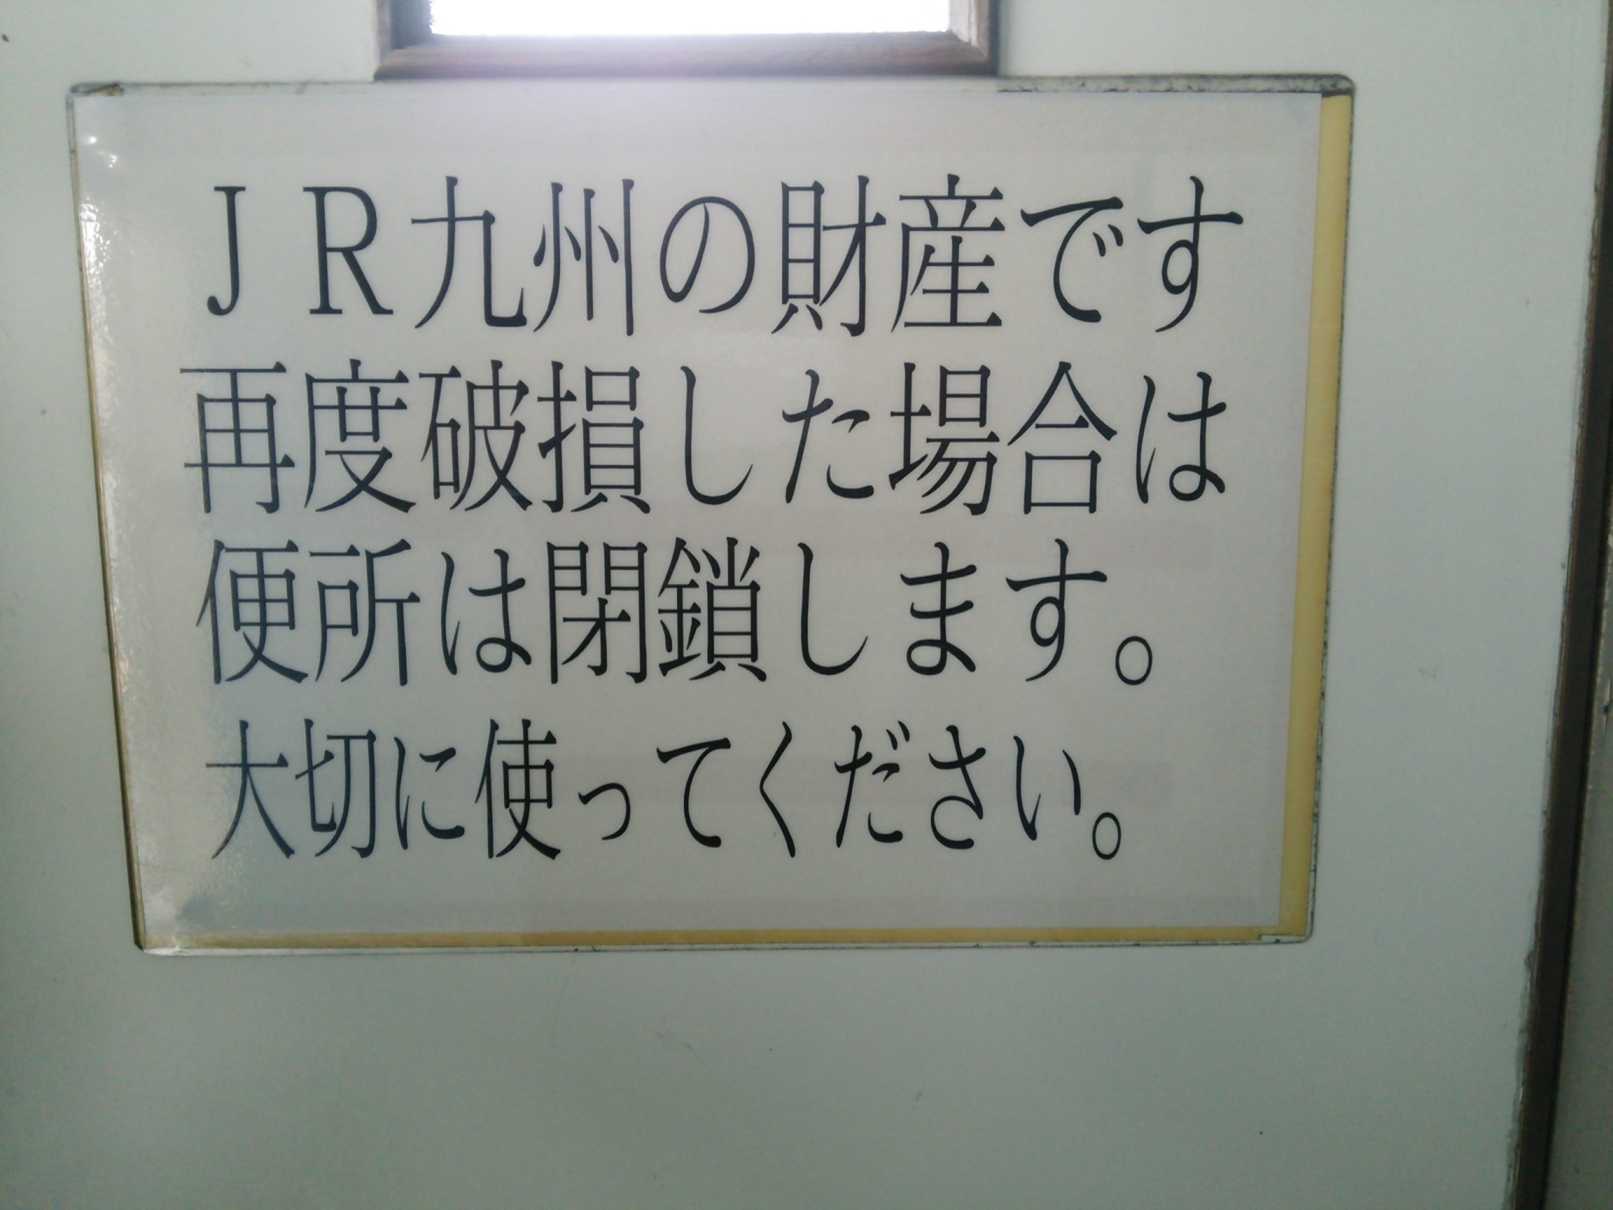 ＪＲ九州の財産です
再度破損した場合は
便所は閉鎖します。
大切に使ってください。